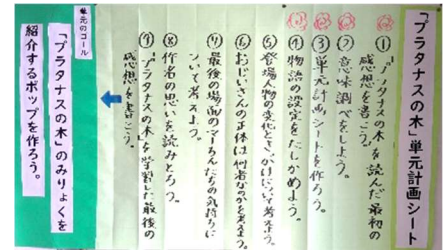 「プラタナスの木」単元計画シート
①「プラタナスの木」を読んだ最初の
感想を書こう。
②意味調べをしよう。
③単元計画シートを作ろう。
④物語の設定をたしかめよう。
⑤登場人物の変化ときっかけについて考えよう。
⑥おじいさんの正体は何者なのかを考えよう。
⑦最後の場面のマーちんたちの気持ちに
ついて考えよう。
⑧作者の思いを読みとろう。
⑨「プラタナスの木」を学習した最後の
感想を書こう。
単元のゴール
「プラタナスの木」のみりょくを
紹介するポップを作ろう。